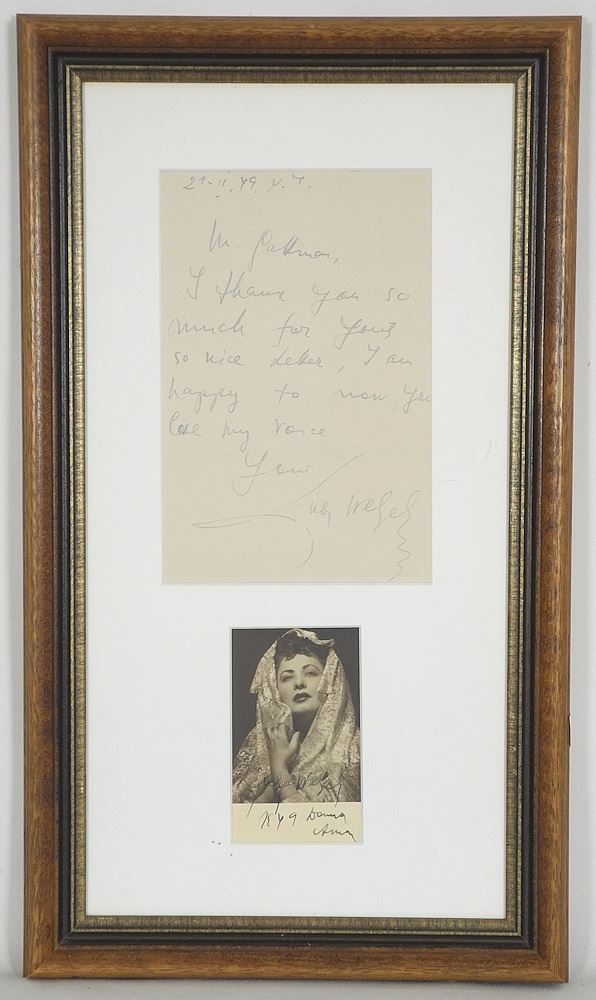 21-II.49 N.Y.
M.
I thank you so
much for yours
so nice letter, I am
happy to now, you
like my voice.
Your
Ljuba Welsch
Ljuba Welsch
Donna
Anna